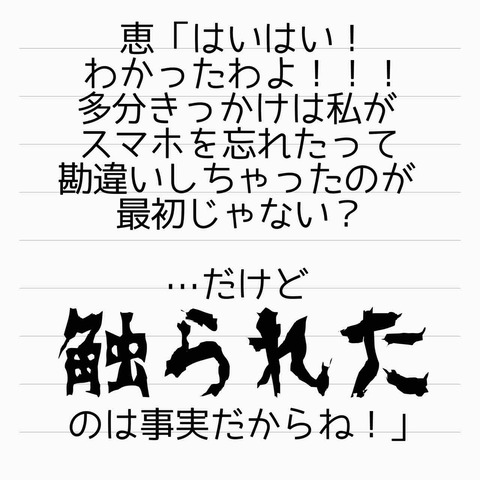 恵「はいはい！
わかったわよ！！！
多分きっかけは私が
スマホを忘れたって
勘違いしちゃったのが
最初じゃない？
…だけど
触られた
のは事実だからね！」